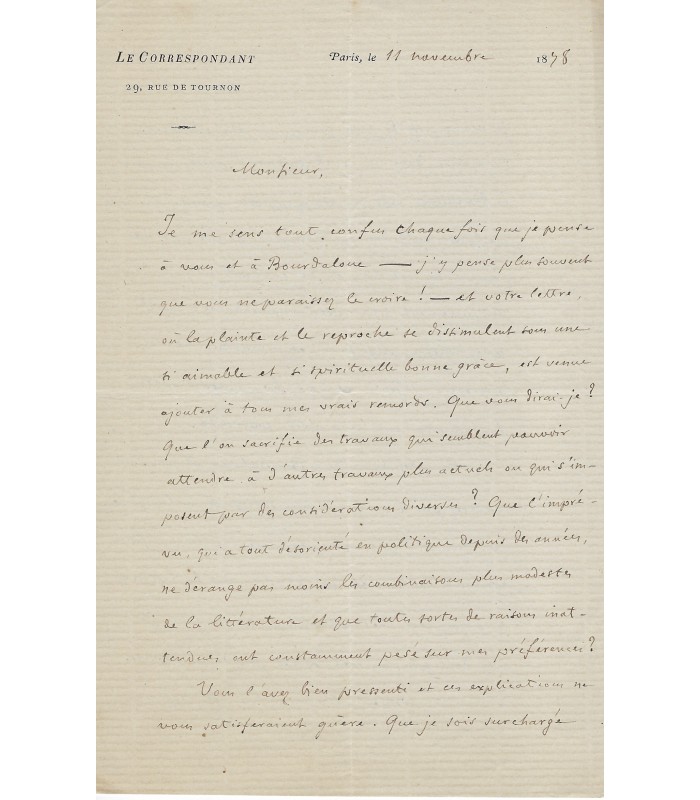 LE CORRESPONDANT
29, RUE DE TOURNON
Paris, le 11 novembre 1878
Monsieur,
Je me sens tout confus chaque fois que je pense
à vous et à Bourdaloue — j'y pense plus souvent
que vous ne paraissez le croire ! — et votre lettre,
où la plainte et le reproche se dissimulent sous une
si aimable et si spirituelle bonne grâce, est venue
ajouter à tous mes vrais remords. Que vous dirai-je ?
Que l'on sacrifie des travaux qui semblent pouvoir
attendre à d'autres travaux plus actuels ou qui s'im-
posent par des considérations diverses ? Que l'impré-
vu, qui a tout désorienté en politique depuis des années,
ne dérange pas moins les combinaisons plus modestes
de la littérature et que toutes sortes de raisons inat-
tendues ont constamment pesé sur mes préférences ?
Vous l'avez bien pressenti et ces explications ne
vous satisferaient guère. Que je sois surchargé